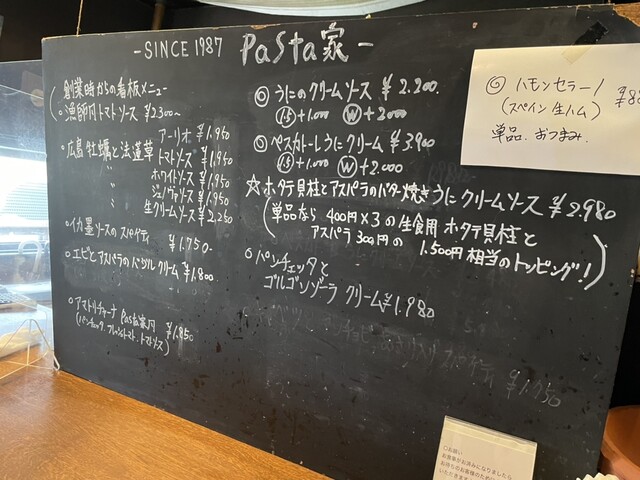 -SINCE 1987 Pasta家-
創業時からの看板メニュー
漁師風トマトソース ¥2300~
アーリオ ¥1,950
○広島牡蠣と法蓮草 トマトソース ¥1,950
〃 ホワイトソース ¥1,950
〃 ジェノヴァソース ¥1,950
〃 生クリームソース ¥2,250
○イカ墨ソースのスパゲティ
¥1.750-
○エビとアスパラのバジルクリーム ¥1,800
○アマトリチャーナ Pasta家風 ¥1,850
(パンチェッタ、フレッシュトマト、トマトソース)
◎うにのクリームソース ¥2.200.
1.5+1.000 W+2000
◎ペスカトーレうにクリーム ¥3,900
1.5+1.000 W+2.000
☆ホタテ貝柱とアスパラのバター焼きうにクリームソース ¥2.980
(単品なら 400円×3の生食用ホタテ貝柱と
アスパラ300円の 1.500円相当のトッピング!)
○パンチェッタと
ゴルゴンゾーラ クリーム ¥1.980
¥1.750
◎ハモンセラーノ
(スペイン生ハム)
単品.おつまみ.
○お願い
お食事がお済みになりましたら
お待ちのお客様のために